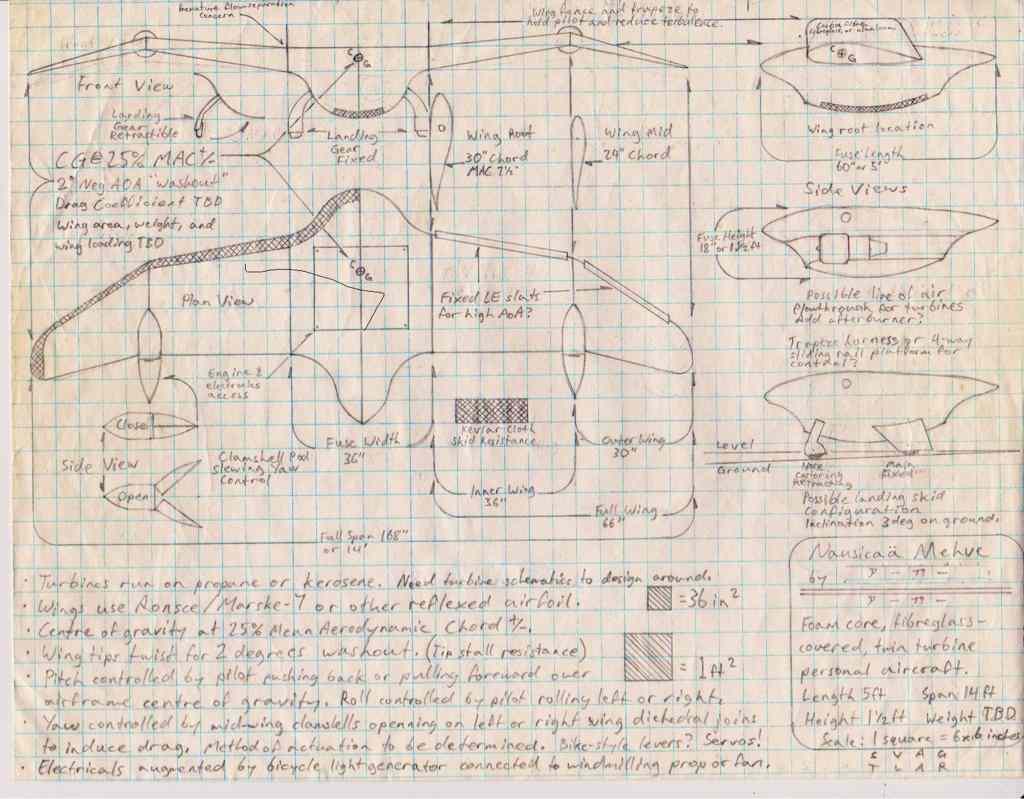 Premature flow separation
concern
Wing fence and trapeze to
hold pilot and reduce turbulence.
Front View
CG
CG
Landing
Gear
Retractible
Landing
Gear
Fixed
Wing Root
30" Chord
MAC 7½"
Wing Mid
24" Chord
Wing root location
Fuse Length
60" or 5'
CG@25% MAC+/-
2° Neg AOA "washout"
Drag Coefficient TBD
Wing area, weight, and
wing loading TBD
Side Views
Fuse Height
18" or 1½ ft
CG
Plan View
Fixed LE slats
for high AoA?
Possible line of air
flowthrough for turbines
Add afterburner?
Trapeze harness or 4-way
sliding rail platform for
control?
Engine &
electronics
access
Close
Fuse Width
36"
Kevlar Cloth
Skid Resistance
Outer Wing
30"
Level
Ground
Nose
Castoring
Retracting
Main
Fixed
Side View
Clamshell Pod
Slewing Yaw
Control
Open
Inner Wing
36"
Full Wing
66"
Possible landing skid
configuration
Inclination 3deg on ground.
Full Span 168"
or 14'
· Turbines run on propane or kerosene. Need turbine schematics to design around.
· Wings use Ronsce/Marske-7 or other reflexed airfoil.
=36in²
· Centre of gravity at 25% Mean Aerodynamic Chord +/-.
· Wing tips twist for 2 degrees washout. (Tip stall resistance)
= 1ft²
· Pitch controlled by pilot pushing back or pulling forward over
airframe centre of gravity. Roll controlled by pilot rolling left or right.
· Yaw controlled by midwing clamshells openning on left or right wing diehedral joins
to induce drag. Method of actuation to be determined. Bike-style levers? Servos!
· Electricals augmented by bicycle light generator connected to windmilling prop or fan.
Nausicaä Mehve
by
Foam core, fibreglass-
covered, twin turbine
personal aircraft.
Length 5ft Span 14ft
Height 1½ft Weight TBD
Scale: 1 square = 6x6 inches
S V A G
T L A R